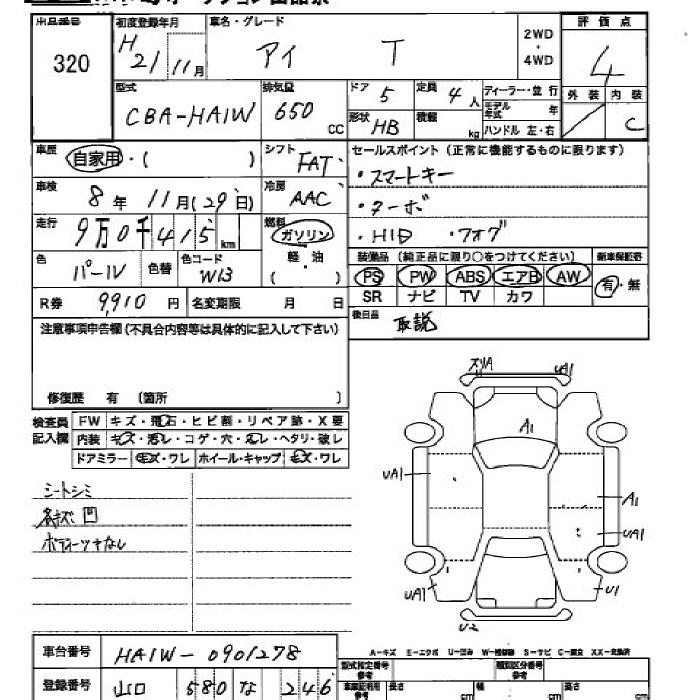 出品番号 初度登録年月 車名・グレード 評価点
320 H 21 11月 アイ T 2WD・4WD 4
外装 内装
C
型式 排気量 ドア 5 定員 4人 ディーラー・並行
CBA-HA1W 650 CC 形状 HB 積載 kg モデル年式 年
ハンドル 左・右
車歴 自家用・( ) シフト FAT セールスポイント (正常に機能するものに限ります)
車検 8年 11月(29日) 冷房 AAC ・スマートキー
・ターボ
走行 9万0千415km 燃料 ガソリン ・HID ・フォグ
軽・油
( )
色 パール 色替 色コード W13 装備品 (純正品に限り○をつけてください) 新車保証書
PS PW ABS エアB AW 有・無
R券 9,910円 名変期限 月 日 SR ナビ TV カワ
注意事項申告欄(不具合内容等は具体的に記入して下さい) 後日品 取説
修復歴 有 〔箇所 〕
検査員記入欄 FW キズ・飛石・ヒビ割・リペア跡・X要
内装 キズ・汚レ・コゲ・穴・スレ・ヘタリ・破レ
ドアミラー キズ・ワレ ホイール・キャップ キズ・ワレ
シートシミ
各キズ凹
ボディーツヤなし
スリA UA1
A1
UA1
A1
UA1
UA1 U1
U2
A-キズ E-エクボ U-凹み W-補修跡 S-サビ C-腐食 XX-交換済
車台番号 HA1W-0901278
型式指定番号 類別区分番号
登録番号 山口 580 な 246
長さ cm 幅 cm 高さ cm